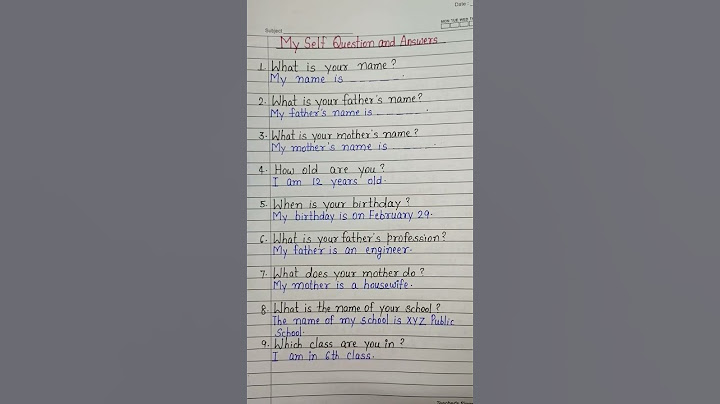 Date :
MON TUE WED TH
Subject
My Self Question and Answers
1. What is your name?
My name is ________.
2. What is your father's name?
My father's name is ________.
3. What is your mother's name?
My mother's name is ________.
4. How old are you?
I am 12 years old.
5. When is your birthday?
My birthday is on February 29.
6. What is your father's profession?
My father is an engineer.
7. What does your mother do?
My mother is a housewife.
8. What is the name of your school?
The name of my school is XYZ Public
School.
9. Which class are you in?
I am in 6th class.